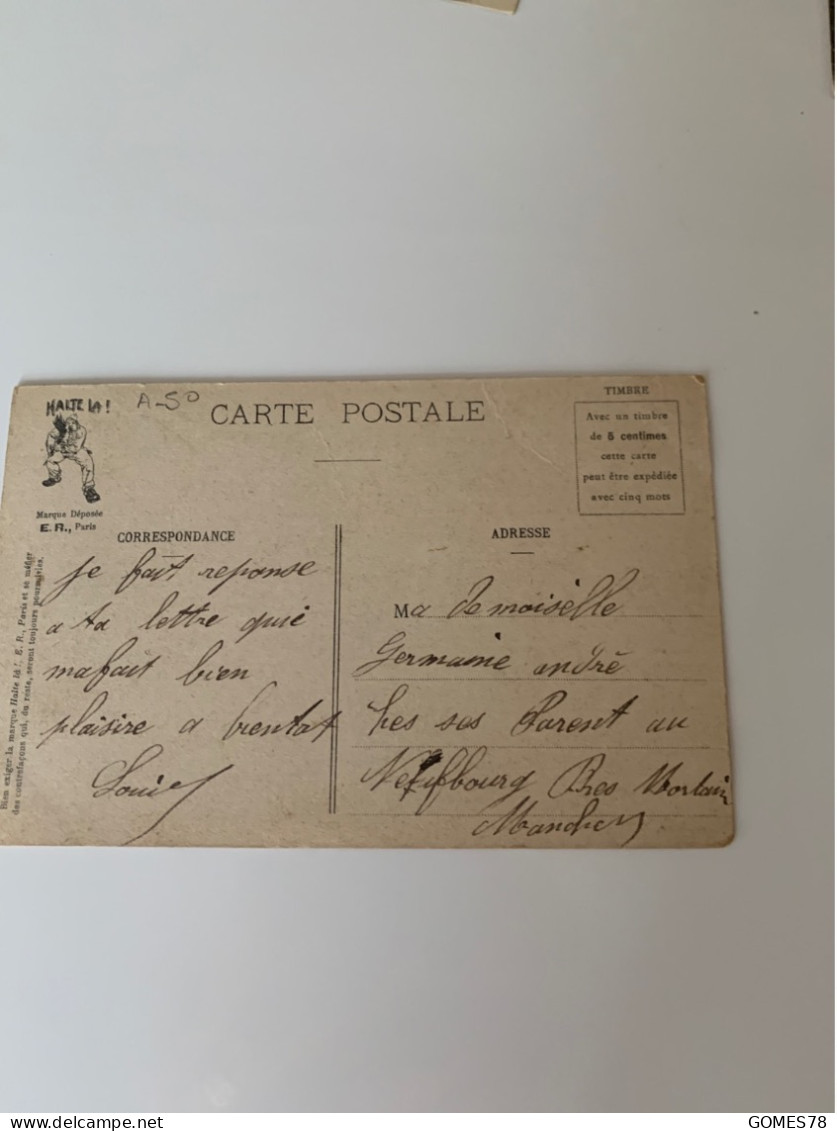 HALTE LA !
A-50
CARTE POSTALE
TIMBRE
Avec un timbre
de 5 centimes
cette carte
peut être expédiée
avec cinq mots
Marque Déposée
E. R., Paris
CORRESPONDANCE
ADRESSE
Bien exiger la marque Halte là !, E. R., Paris et se méfier
des contrefaçons qui, du reste, seront toujours poursuivies.
je fait reponse
a ta lettre qui
ma fait bien
plaisire a bientot
Louis
Ma demoiselle
Germaine andré
hes ses Parent au
Neufbourg Pres Mortain
Manche
GOMES78